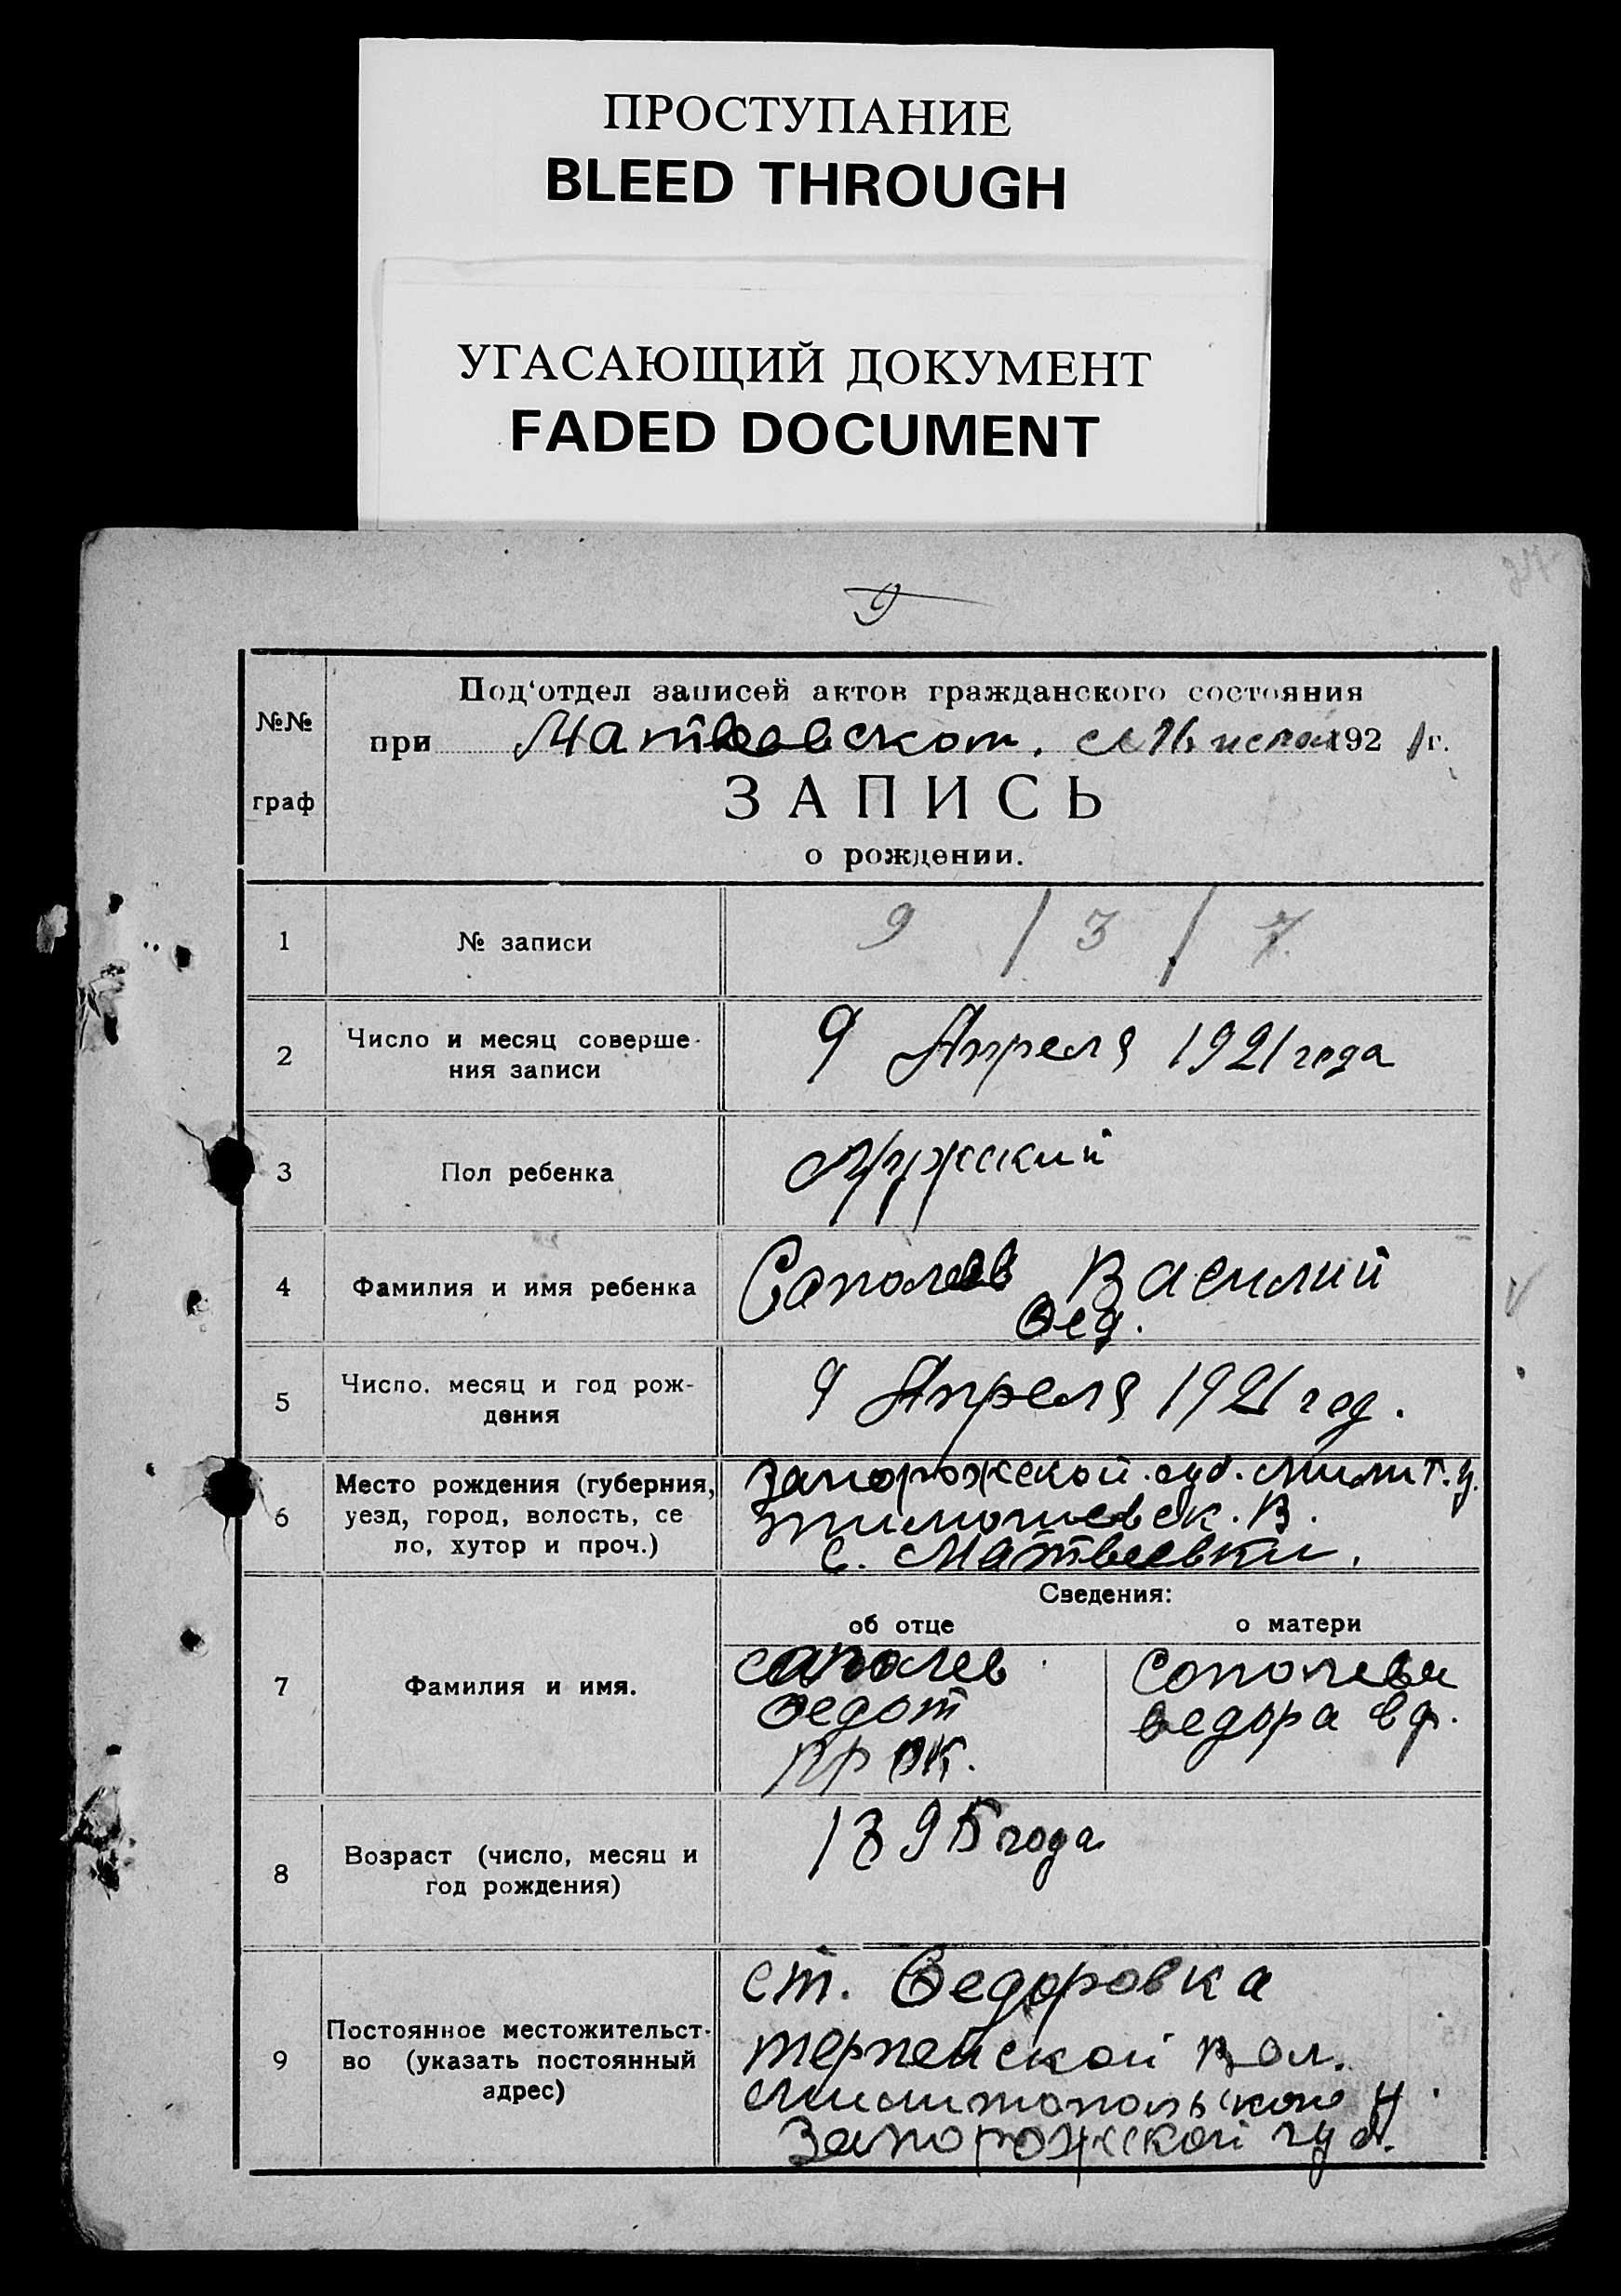 ПРОСТУПАНИЕ
BLEED THROUGH
УГАСАЮЩИЙ ДОКУМЕНТ
FADED DOCUMENT
9
№№
граф
Под'отдел записей актов гражданского состояния
при Матвеевском. 192 1 г.
ЗАПИСЬ
о рождении.
1 № записи 9 / 3 / 7
2 Число и месяц соверше-
ния записи
9 Апреля 1921 года
3 Пол ребенка Мужский
4 Фамилия и имя ребенка Саполев Василий
Фед.
5 Число, месяц и год рож-
дения
9 Апреля 1921 год.
6 Место рождения (губерния,
уезд, город, волость, се
ло, хутор и проч.)
Запорожской губ. Мелит. у.
Тимошевск. В.
с. Матвеевки.
Сведения:
об отце о матери
7 Фамилия и имя.
Саполев
Федот
Прок.
Сополева
Федора Еф.
8 Возраст (число, месяц и
год рождения)
1895 года
9 Постоянное местожительст-
во (указать постоянный
адрес)
ст. Федоровка
Терпейской вол.
Милитопольского у.
Запорожской губ.